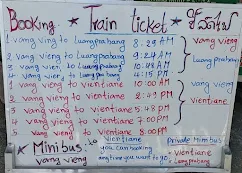 Booking ★ Train ticket ★
1 vang ving to Luangprabang 8:29 AM
2 vang vieng to Luangprabang 9:24 AM
3 vang vieng to Luangprabang 10:48 AM
4 vang vieng to Luang prabang 4:15 PM
vang vieng
Luang prabang
1 vang vieng to vientiane 10:00 AM
2 vang vieng to vientiane
3 vang vieng to vientiane 5:48 PM
4 vang vieng to vientiane 7:00 PM
5 vang vieng to vientiane 8:00 PM
vang vieng
vientiane
Minibus to vientiane
vang vieng
you can booking
any time you want to go
private Minibus
• vientiane
• Luang prabang